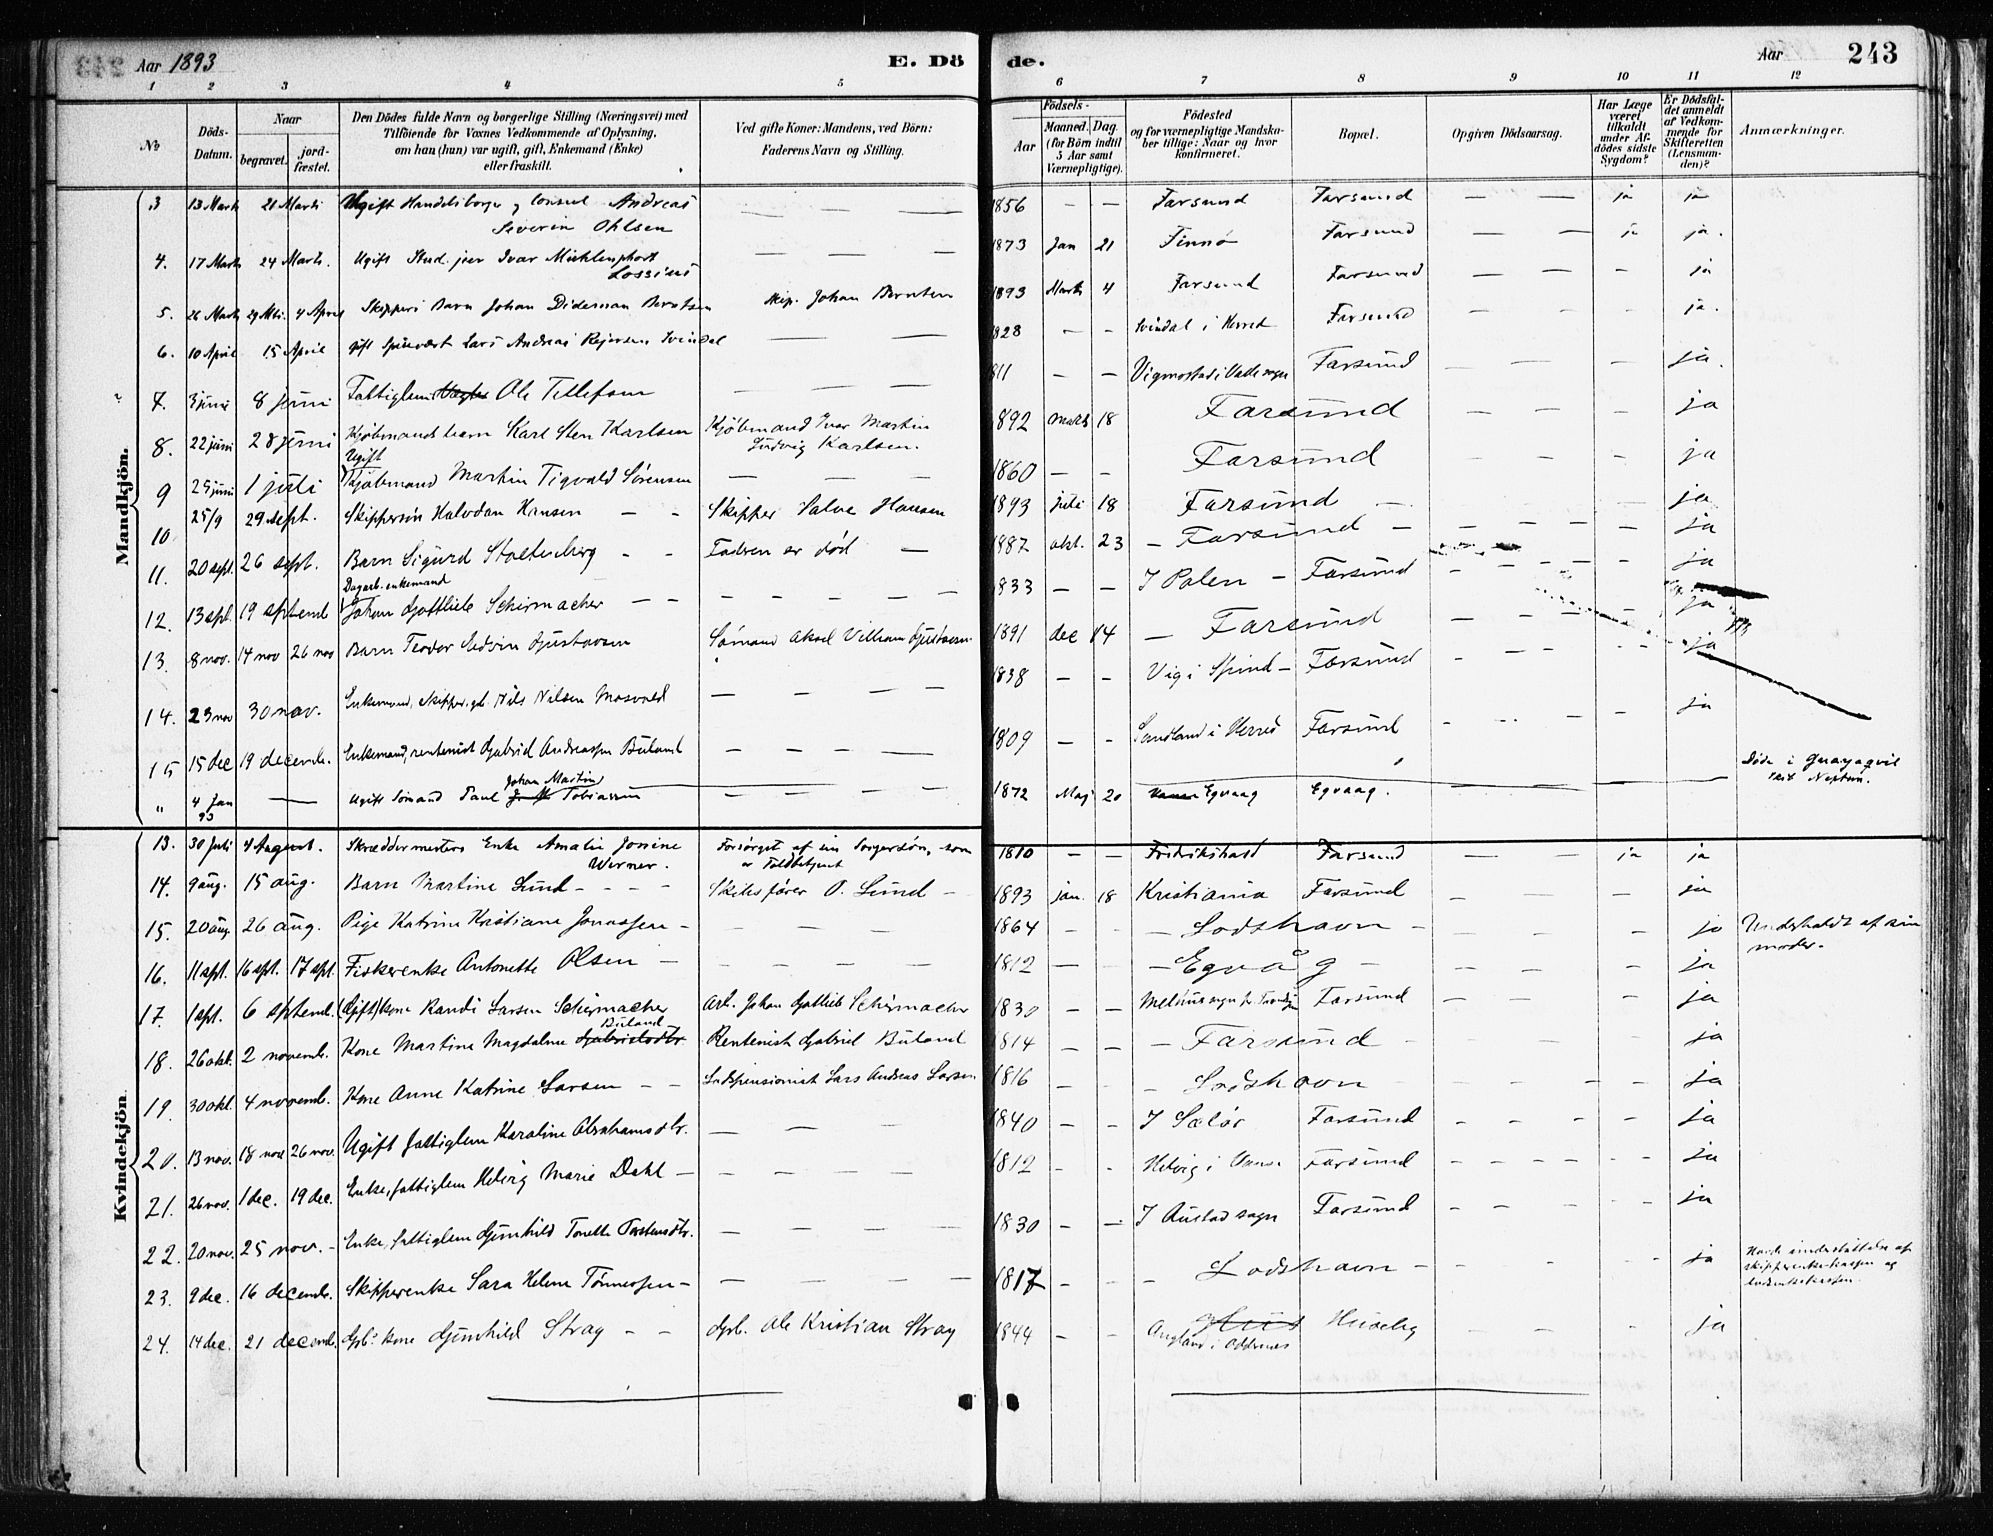 Aar 1893
E. Dö
de.
Aar
243
1 2 3 4 5 6 7 8 9 10 11 12
No
Döds-Datum.
Naar
begravet.
jord-fæstet.
Den Dödes fulde Navn og borgerlige Stilling (Næringsvei) med
Tilföiende for Voxnes Vedkommende af Oplysning,
om han (hun) var ugift, gift, Enkemand (Enke)
eller fraskilt.
Ved gifte Koner: Mandens, ved Börn:
Faderens Navn og Stilling.
Födsels-
Aar
Maaned. Dag.
(for Börn indtil
5 Aar samt
Værnepligtige).
Födested
og for værnepligtige Mandska-
ber tillige: Naar og hvor
konfirmeret.
Bopæl.
Opgiven Dödsaarsag.
Har Læge
været
tilkaldt
under Af-
dödes sidste
Sygdom?
Er Dödsfal-
det anmeldt
af Vedkom-
mende for
Skifteretten
(Lensman-
den)?
Anmærkninger.
Mandkjön.
3 13 Marts 21 Marts Ugift Handelsborger og Consul Andreas Severin Ohlsen — — — 1856 — — Farsund Farsund — — ja ja
4. 17 Marts 24 Marts. Ugift Stud. jur Ivar Lossius — — — 1873 Jan 21 Finnø Farsund — — ja ja.
5. 26 Marts 29 Mts. 4 April Skippers Barn Johan Dideman Berntsen Skip. Johan Berntsen 1893 Marts 4 Farsund Farsund — — — ja
6. 10 April 15 April gift Lars Andreas Svindal — — — 1828 — — Svindal i Herred Farsund — — — ja.
7. 3 juni 8 juni Fattiglem Ole Tellefsen — — — 811 — — Vigmostad i Valle sogn Farsund — — — ja
8. 22 juni 28 juni Kjøbmands barn Karl Sten Karlsen Kjøbmand Ivar Martin Ludvig Karlsen. 1892 marts 18 Farsund — — — ja
9 25 juni 1 juli Ugift Kjøbmand Martin Tigvald Sørensen — — — 1860 — — Farsund — — — ja
10 25/9 29 sept. Skippersøn Halvdan Hansen — — Skipper Salve Hansen 1893 juli 18 Farsund — ja
11. 20 sept. 26 sept. Barn Sigurd Stoltenberg — — Faderen er død — 1887 okt. 23 — Farsund — — — — — ja
12. 13 spt. 19 septemb Dagarb. enkemand Johan Gottlieb Schirmacher — — — — — — — — 1833 — — I Polen — Farsund — — — ja
13. 8 nov. 14 nov 26 nov Barn Teodor Edvin Gustavsen Sømand Aksel Vilhelm Gustavsen 1891 dec 14 — Farsund — — — — ja
14. 23 nov 30 nov. Enkemand, Skipper, gl. Nils Nilsen Mosvold — — — — 1838 — — Vig i Spind — Farsund — — — — ja
15 15 dec 19 decemb. Enkemand, rentenist Gabriel Andreassen Buland — — — — 1809 — — Sandland i Herred Farsund — — — — ja
" 4 Jan 93 — Ugift Sømand Paul Johan Martin Tobiassen — — — — 1872 Maj 20 Egvaag Egvaag. Døde i Guayaqvil skib Neptun.
Kvindekjön.
13. 30 Juli 4 August. Skræddermesters Enke Amalie Jonine Werner. Forsørget af sin Sorgersøn, som er Toldbetjent 1810 — — Fredrikshald Farsund — — ja ja
14. 9 aug. 15 aug. Barn Martine Lund — — — Skibsfører O. Lund — 1893 jan. 18 Kristiania Farsund — — — ja
15. 20 aug. 26 aug. Pige Katrine Kristiane Jonassen — — — — 1864 — — — Lodshavn — — — ja Underholdt af sin moder.
16. 11 spt. 16 spt. 17 spt. Fiskerenke Antonette Olsen — — — — — 1812 — — — Egvåg — — — — ja
17. 1 spt. 6 septemb. (Gift) kone Randi Larsen Schirmacher Arb. Johan Gottlieb Schirmacher 1830 — — Melhus sogn Farsund — — — ja
18. 26 okt. 2 novemb. Kone Martine Magdalene Buland Rentenist Gabriel Buland 1814 — — — Farsund — — — — ja
19. 30 okt. 4 novemb. Kone Anne Katrine Larsen — — Lodspensionist Lars Andreas Larsen 1816 — — — Lodshavn — — — — ja
20. 13 nov. 18 nov 26 nov. Ugift fattiglem Karoline Abrahamsdtr. — — — 1840 — — I Sælør Farsund — — — — ja
21. 26 nov. 1 dec. 19 dec. Enke, fattiglem Helvig Marie Dahl — — — — 1812 — — Helvig i Vanse Farsund — — — — ja
22. 20 nov. 25 nov. — Enke, fattiglem Gunhild Tonette Torstensdtr. — — — 1830 — — I Austad sogn Farsund — — — — ja
23. 9 dec. 16 decemb. Skipperenke Sara Helene Tønnessen — — — — — 1817 — — — Lodshavn — — — — ja Havde understøttelse af skipperenkekassen og
24. 14 dec. 21 decemb. Grb. kone Gunhild Stray — — Grb. Ole Kristian Stray 1844 — — Angland i Oddernes Huseby — — — ja